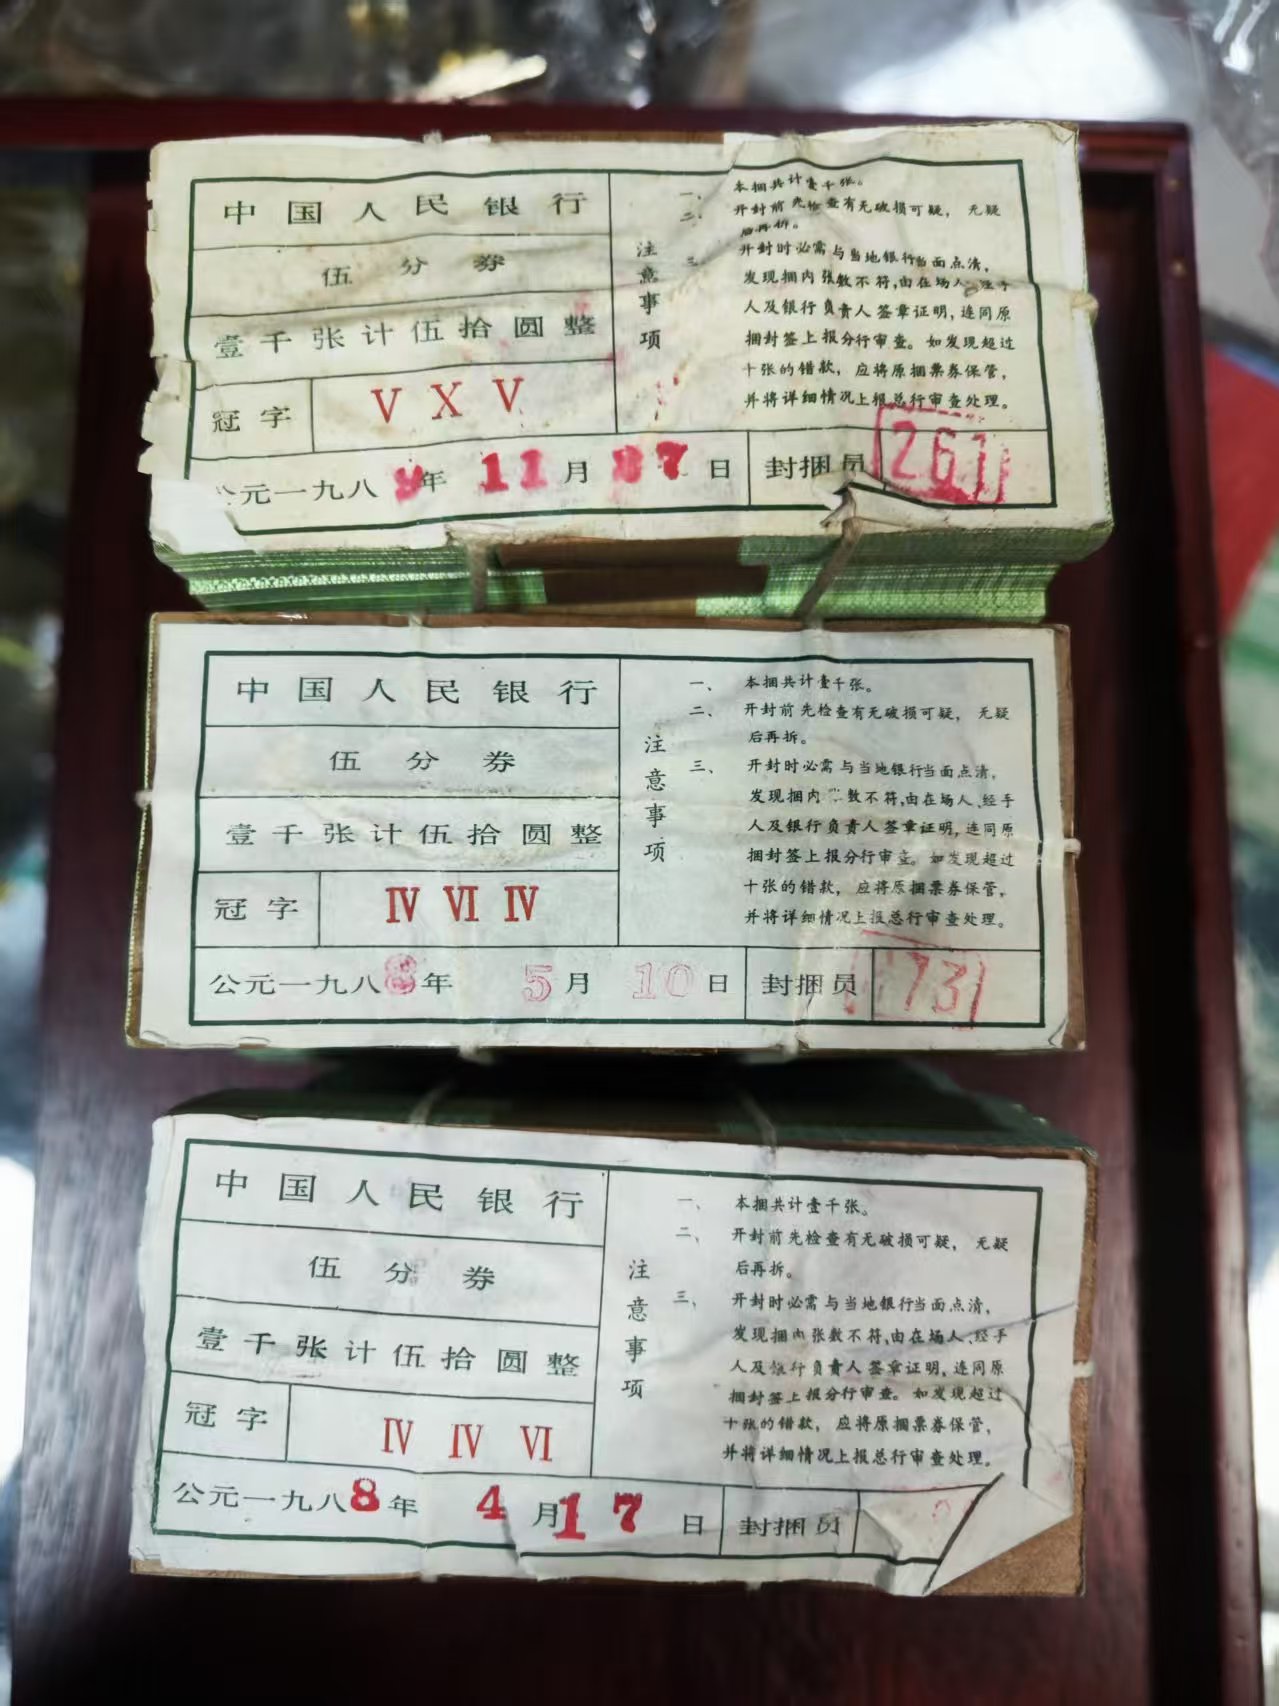 中国人民银行
伍分券
壹千张计伍拾圆整
冠字 V X V
公元一九八 年 11月 7日 封捆员 261
注意事项
一、本捆共计壹千张。
二、开封前先检查有无破损可疑，无疑
后再拆。
三、开封时必需与当地银行当面点清，
发现捆内张数不符，由在场人、经手
人及银行负责人签章证明，连同原
捆封签上报分行审查。如发现超过
十张的错款，应将原捆票券保管，
并将详细情况上报总行审查处理。
中国人民银行
伍分券
壹千张计伍拾圆整
冠字 Ⅳ Ⅵ Ⅳ
公元一九八8年 5月 10日 封捆员 73
注意事项
一、本捆共计壹千张。
二、开封前先检查有无破损可疑，无疑
后再拆。
三、开封时必需与当地银行当面点清，
发现捆内 数不符，由在场人、经手
人及银行负责人签章证明，连同原
捆封签上报分行审查。如发现超过
十张的错款，应将原捆票券保管，
并将详细情况上报总行审查处理。
中国人民银行
伍分券
壹千张计伍拾圆整
冠字 Ⅳ Ⅳ Ⅵ
公元一九八8年 4月17日 封捆员
注意事项
一、本捆共计壹千张。
二、开封前先检查有无破损可疑，无疑
后再拆。
三、开封时必需与当地银行当面点清，
发现捆内张数不符，由在场人、经手
人及银行负责人签章证明，连同原
捆封签上报分行审查。如发现超过
十张的错款，应将原捆票券保管，
并将详细情况上报总行审查处理。